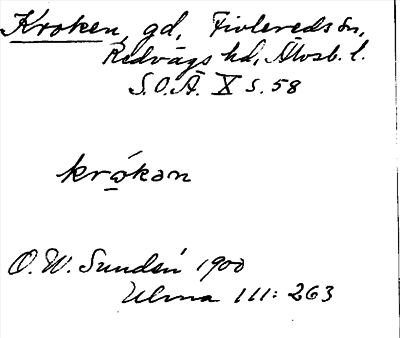 Kroken, gd, Fivlereds sn,
Redvägs hd, Älvsb. l.
S.O.Ä. X s. 58
krókan
O. W. Sundén 1900
Ulma 111: 263